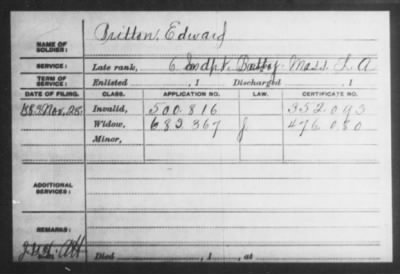 NAME OF SOLDIER: Britton, Edward
SERVICE: Late rank, 6 Indpt. Batty. Mass. L. A
TERM OF SERVICE: Enlisted , 1 Discharged , 1
DATE OF FILING. CLASS. APPLICATION NO. LAW. CERTIFICATE NO.
Nov. 28 Invalid, 500.816 352.093
Widow, 683.367 J. 476.080
Minor,
ADDITIONAL SERVICES:
REMARKS:
Died , 1 , at